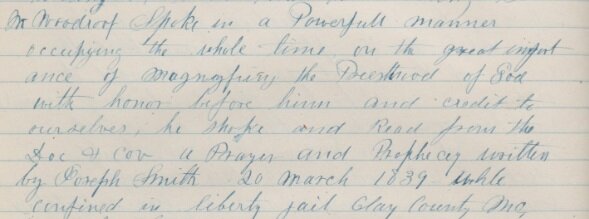 W Woodroof Spoke in a Powerfull manner
occupying the whole time on the great import
ance of magnyfieng the Priesthood of God
with honor before him and credit to
ourselves, he spoke and Read from the
Doc & Cov a Prayer and Prophecy written
by Joseph Smith 20 march 1839 while
confined in liberty jail Clay County Mo,